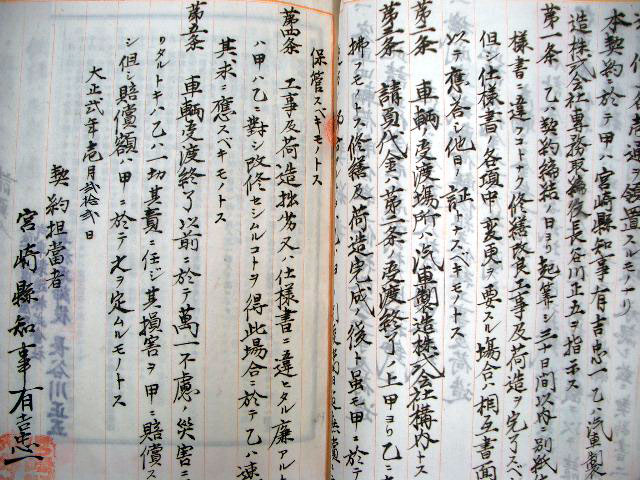 本契約ニ於テ甲ハ宮崎縣知事有吉忠一乙ハ汽車製
造株式会社専務取締役長谷川正五ヲ指示ス
第一条 乙ハ契約締結ノ日ヨリ起算シ三十日間以内ニ別紙仕
様書ニ違フコトナク修繕改良工事及荷造ヲ完了スベ
但シ仕様書ノ各項中変更ヲ要スル場合ハ相互書面
以テ應答シ他日ノ証トナスベキモノトス
第二条 車輌ノ受渡場所ハ汽車製造株式会社構内トス
第三条 請負代金ハ第二条ノ受渡終了ノ上甲ヨリ乙ニ
拂フモノトス修繕及荷造完成ノ後ト雖モ甲ニ於テ
保管スベキモノトス
第四条 工事及荷造拙劣又ハ仕様書ニ違ヒタル廉アルト
ハ甲ハ乙ニ對シ改修セシムルコトヲ得此場合ニ於テ乙ハ速
其求ニ應スベキモノトス
第五条 車輌受渡終了以前ニ於テ萬一不慮ノ災害ニ
リタルトキハ乙ハ一切其責ニ任ジ其損害ヲ甲ニ賠償ス
シ但シ賠償額ハ甲ニ於テ之ヲ定ムルモノトス
大正弐年壱月弐拾弐日
契約担當者
宮崎縣知事有吉忠一